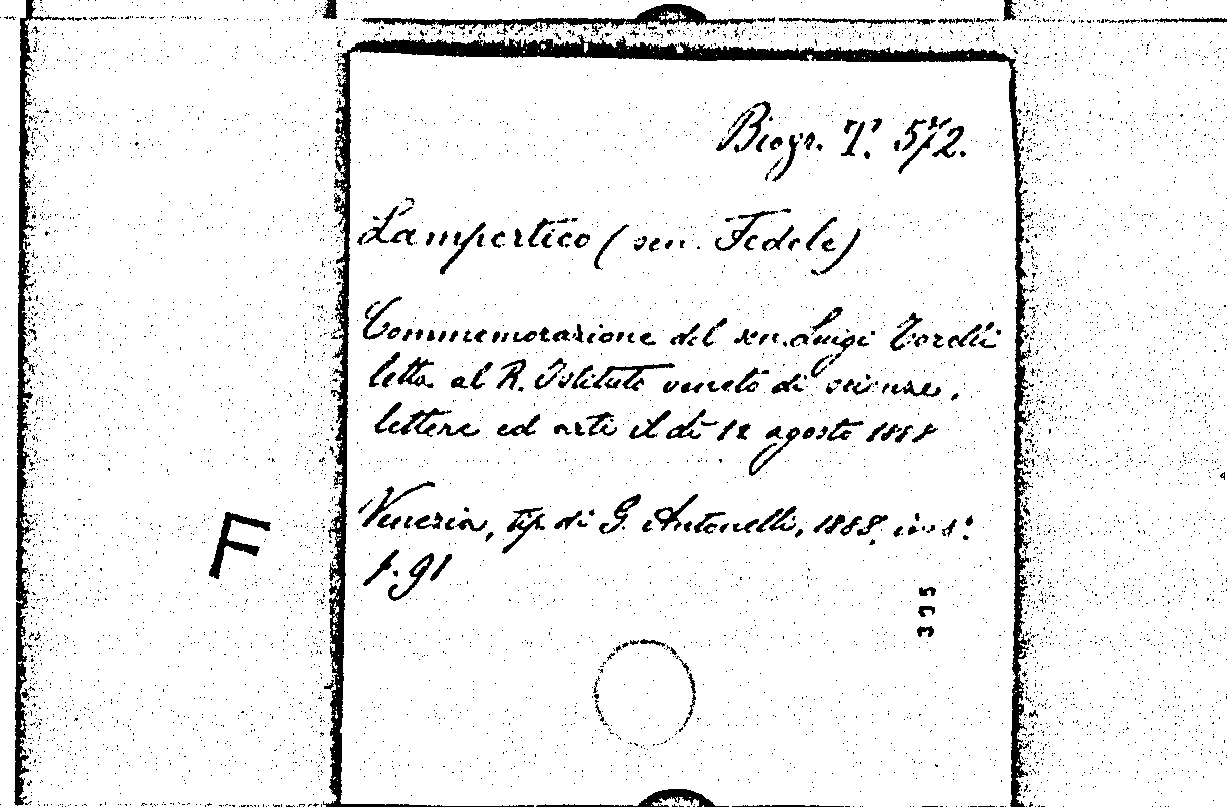 Biogr. T. 572.
Lampertico (sen. Fedele)
Commemorazione del sen. Luigi Torelli
letta al R. Istituto veneto di scienze,
lettere ed arti il dì 12 agosto 1888
Venezia, tip. di G. Antonelli, 1888, in 8.°
p. 91
F
395